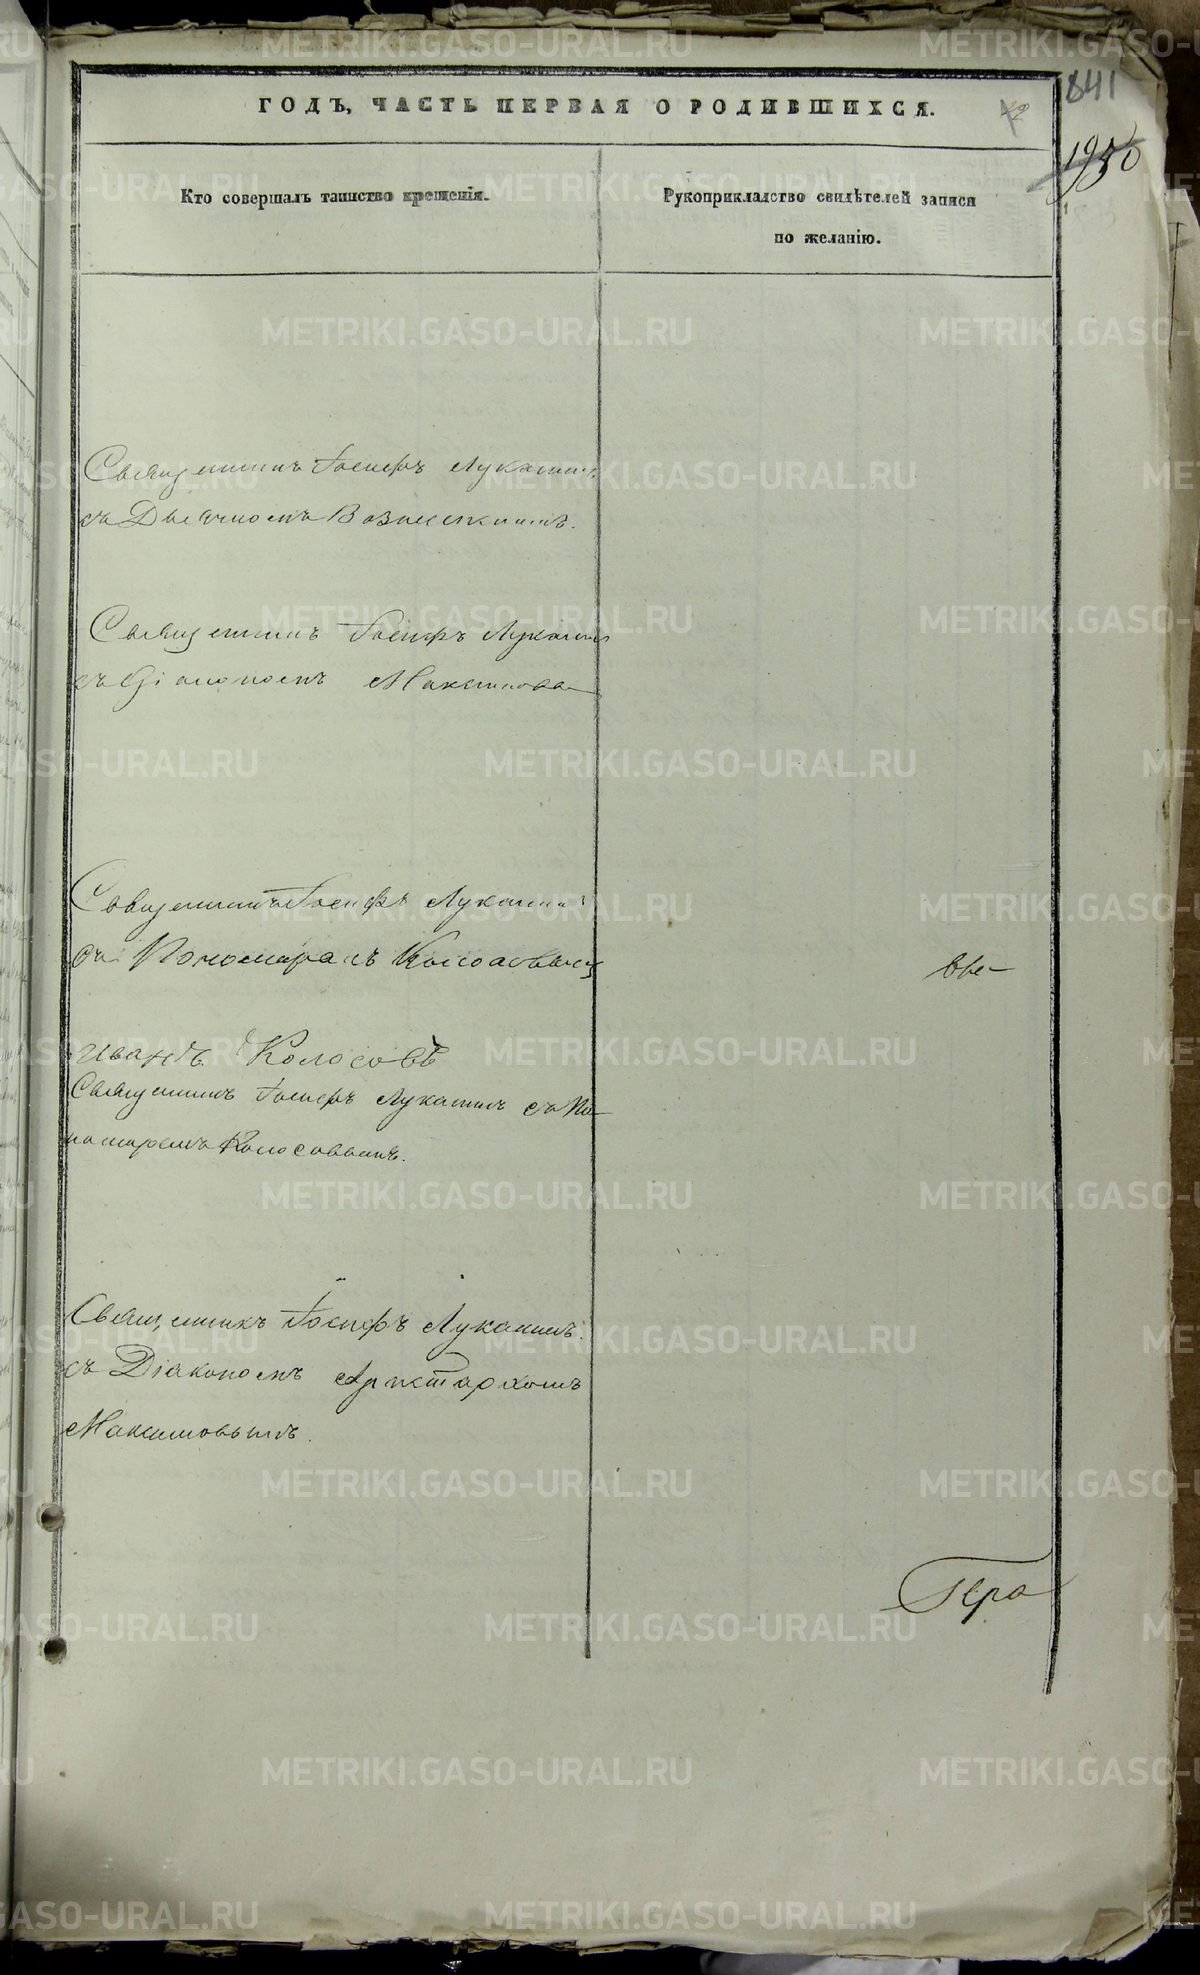 841
ГОДЪ, ЧАСТЬ ПЕРВАЯ О РОДИВШИХСЯ.
1950
Кто совершалъ таинство крещенія.
Рукоприкладство свидѣтелей записи
по желанію.
Священникъ Іосифъ Лукании
съ Дьячкомъ Вознесенскимъ.
Священникъ Іосифъ Лукании
съ Діакономъ Максимовы
Священникъ Іосифъ Лукании
съ Пономаремъ Колосовымъ
Иванъ Колосовъ
Священникъ Іосифъ Луканинъ съ По
номаремъ Колосовымъ.
Священникъ Іосифъ Луканинъ
съ Діакономъ Аристархомъ
Максимовымъ.
METRIKI.GASO-URAL.RU